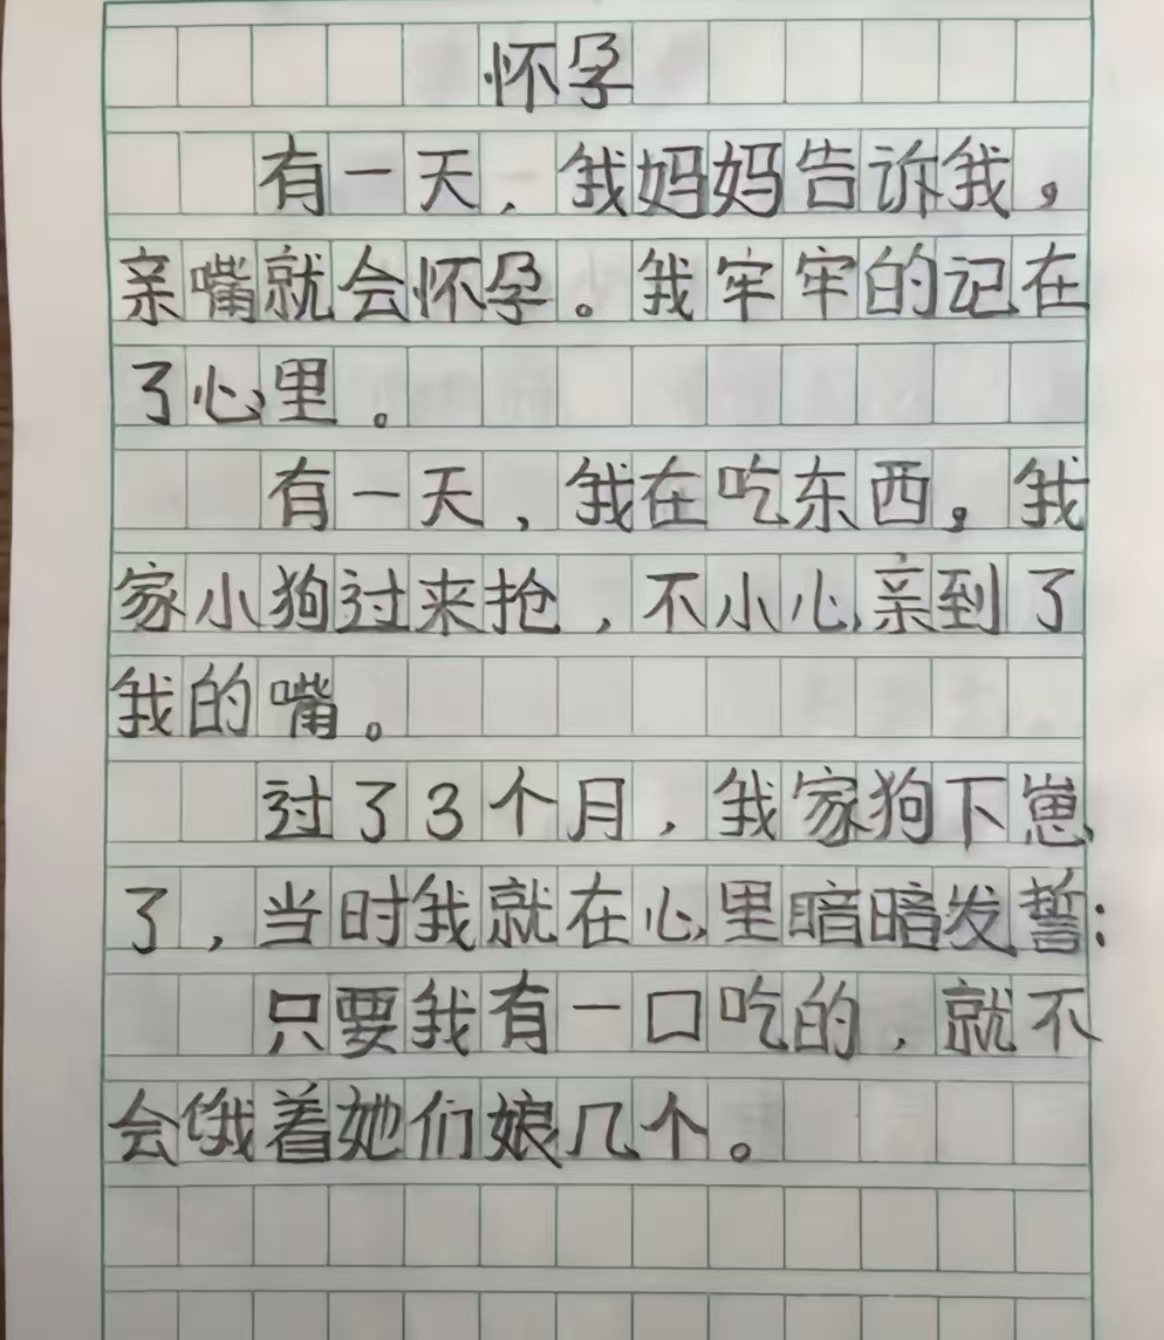 怀孕
有一天，我妈妈告诉我，
亲嘴就会怀孕。我牢牢的记在
了心里。
有一天，我在吃东西。我
家小狗过来抢，不小心亲到了
我的嘴。
过了3个月，我家狗下崽
了，当时我就在心里暗暗发誓：
只要我有一口吃的，就不
会饿着她们娘几个。